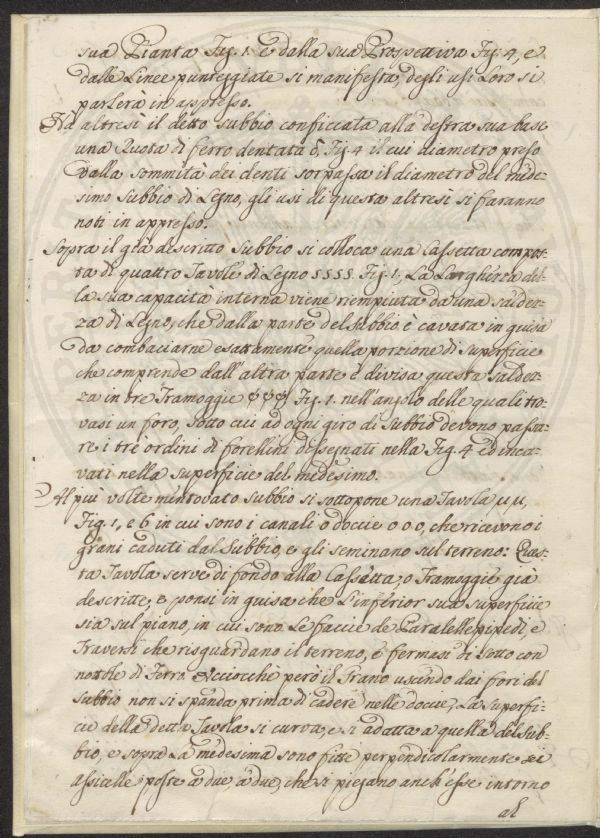 sua Pianta Fig. 1. e dalla sua Prospettiva Fig. 4, e
dalle Linee punteggiate si manifesta, degli usi Loro si
parlerà in appresso.
Hà altresì il detto subbio conficcata alla destra sua base
una Ruota di ferro dentata Fig. 4 il cui diametro preso
dalla sommità dei denti sorpassa il diametro del mede-
simo subbio di Legno, gli usi di questa altresì si faranno
noti in appresso.
Sopra il già descritto Subbio si colloca una Cassetta compos-
ta di quattro Tavole di Legno SSSS. Fig. 1. La Larghezza del-
la sua capacità interna viene riempiuta da una saldez-
za di Legno, che dalla parte del subbio è cavata in guisa
da combaciarne esattamente quella porzione di superficie
che comprende dall'altra parte è divisa questa saldez-
za in tre Tramoggie φφφ, Fig. 1. nell'angolo delle quali tro-
vasi un foro, sotto cui ad ogni giro di subbio devono passa-
re i trè ordini di forellini dessegnati nella Fig. 4 ed inca-
vati nella superficie del medesimo.
Al più volte mentovato subbio si sottopone una Tavola u,u,
Fig. 1, e 6 in cui sono i canali o doccie o o o, che ricevono i
grani caduti dal Subbio, e gli seminano sul terreno: Ques-
ta Tavola serve di fondo alla Cassetta, o Tramoggie già
descritte, e ponsi in guisa che l'inferior sua superficie
sia sul piano, in cui sono Le faccie de Paralellepipedi, e
Traversi che risguardano il terreno, e fermasi di sotto con
nottole di Ferro. Acciocche però il Grano uscendo dai fori del
subbio non si spanda prima di cadere nelle doccie, La superfi-
cie della detta Tavola si curva, e si adatta a quella del Sub-
bio, e sopra La medesima sono fitte perpendicolarmente sei
assicelle poste a due a due, che si piegano anch'esse intorno
al